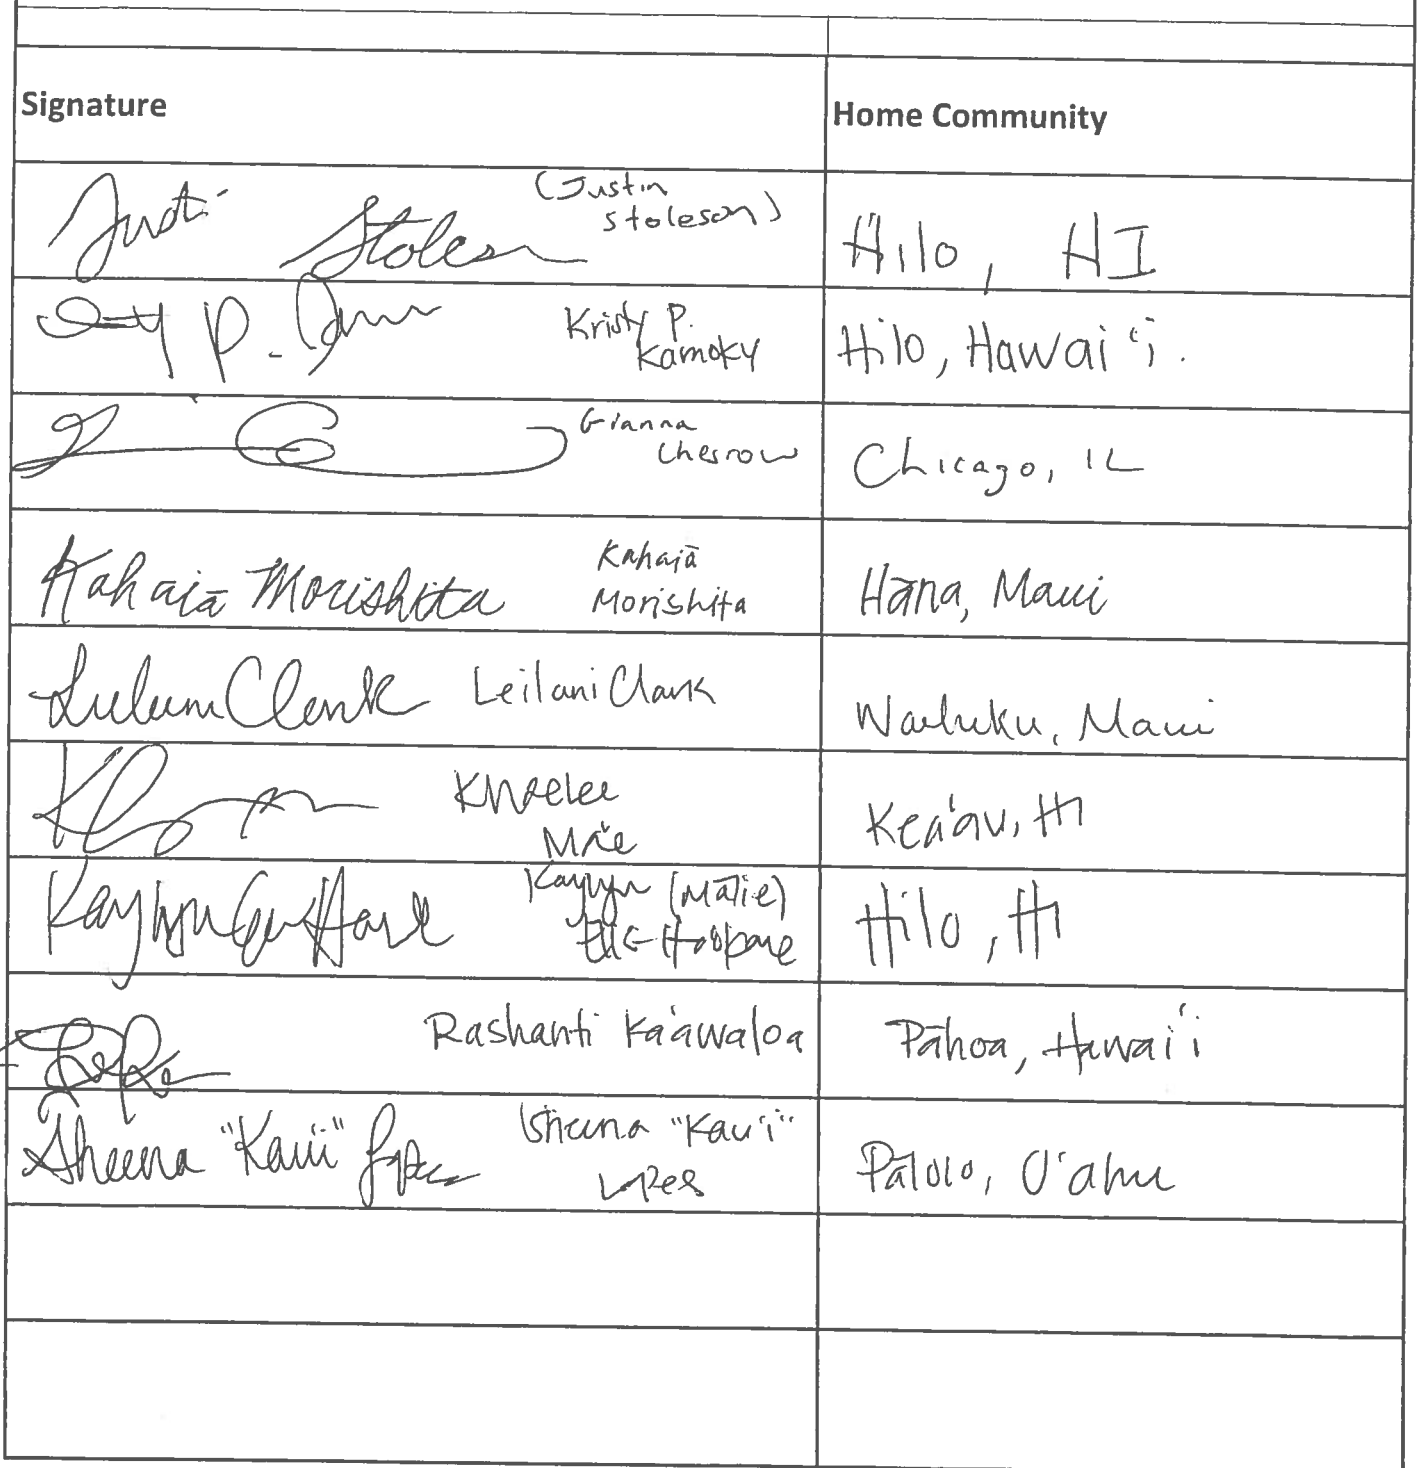 Signature Home Community
Justin Stoleson (Justin
Stoleson) Hilo, HI
Kristy P.
Kamoky Hilo, Hawai'i.
Gianna
Chesrow Chicago, IL
Kahaiā Morishita Kahaiā
Morishita Hāna, Maui
Leilani Clark Leilani Clark Wailuku, Maui
Mā'e Kea'au, HI
Kaylyn Kaylyn (Mālie)
Hilo, HI
Rashanti Ka'awaloa Pāhoa, Hawai'i
Sheena "Kau'i" Lopes Sheena "Kau'i"
Lopes Pālolo, O'ahu